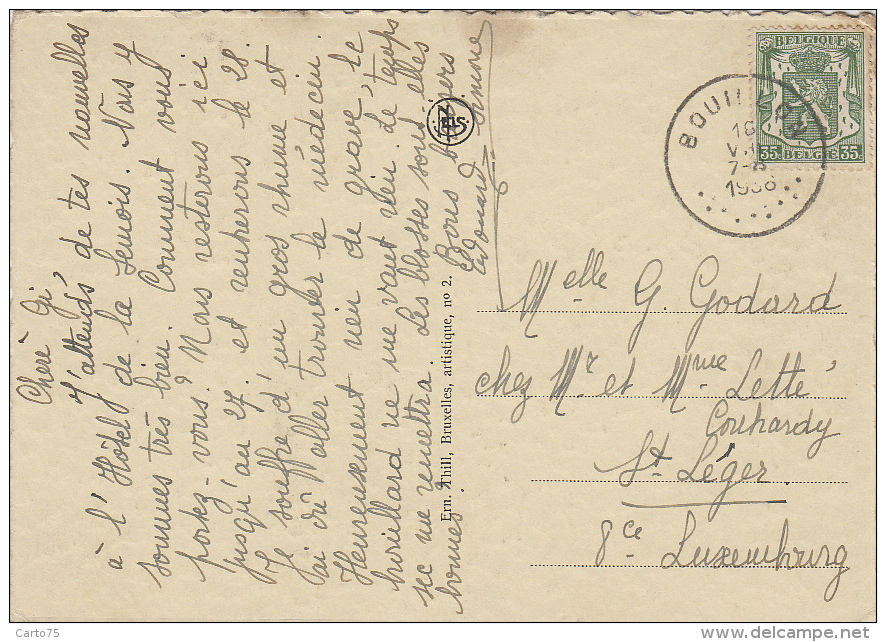 Chère Gi,
J'attends de tes nouvelles
à l'Hôtel de la Semois. Nous y
sommes très bien. Comment vous
portez-vous? Nous resterons ici
jusqu'au 27. et rentrerons le 28.
Je souffre d'un gros rhume et
j'ai dû aller trouver le médecin.
Heureusement rien de grave, le
brouillard ne me vaut rien. Le temps
sec me remettra. Les blosses sont elles
bonnes? Bons baisers
Edouard-Simone
Ern. Thill, Bruxelles, artistique, no 2.
BELGIQUE
35c BELGIE 35c
BOUILLON
16
7-8
1938
Melle G. Godard
chez Mr et Mme Letté
Couhardy
St Léger
Pce Luxembourg
Carto75
www.delcampe.net